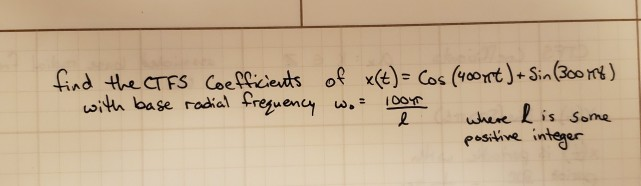 find the CTFS Coefficients of x(t) = Cos (400πt) + Sin (300πt)
with base radial frequency ω₀ = 100π/l
where l is some
positive integer